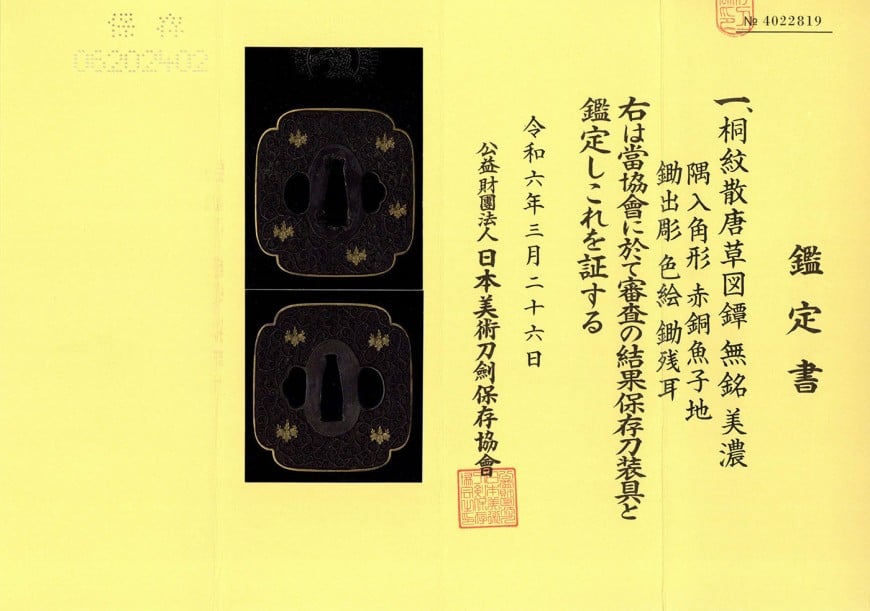 № 4022819
鑑定書
一、桐紋散唐草図鐔 無銘 美濃
隅入角形 赤銅魚子地
鋤出彫 色絵 鋤残耳
右は當協會に於て審査の結果保存刀装具と
鑑定しこれを証する
令和六年三月二十六日
公益財團法人 日本美術刀劍保存協會
保存
06202402